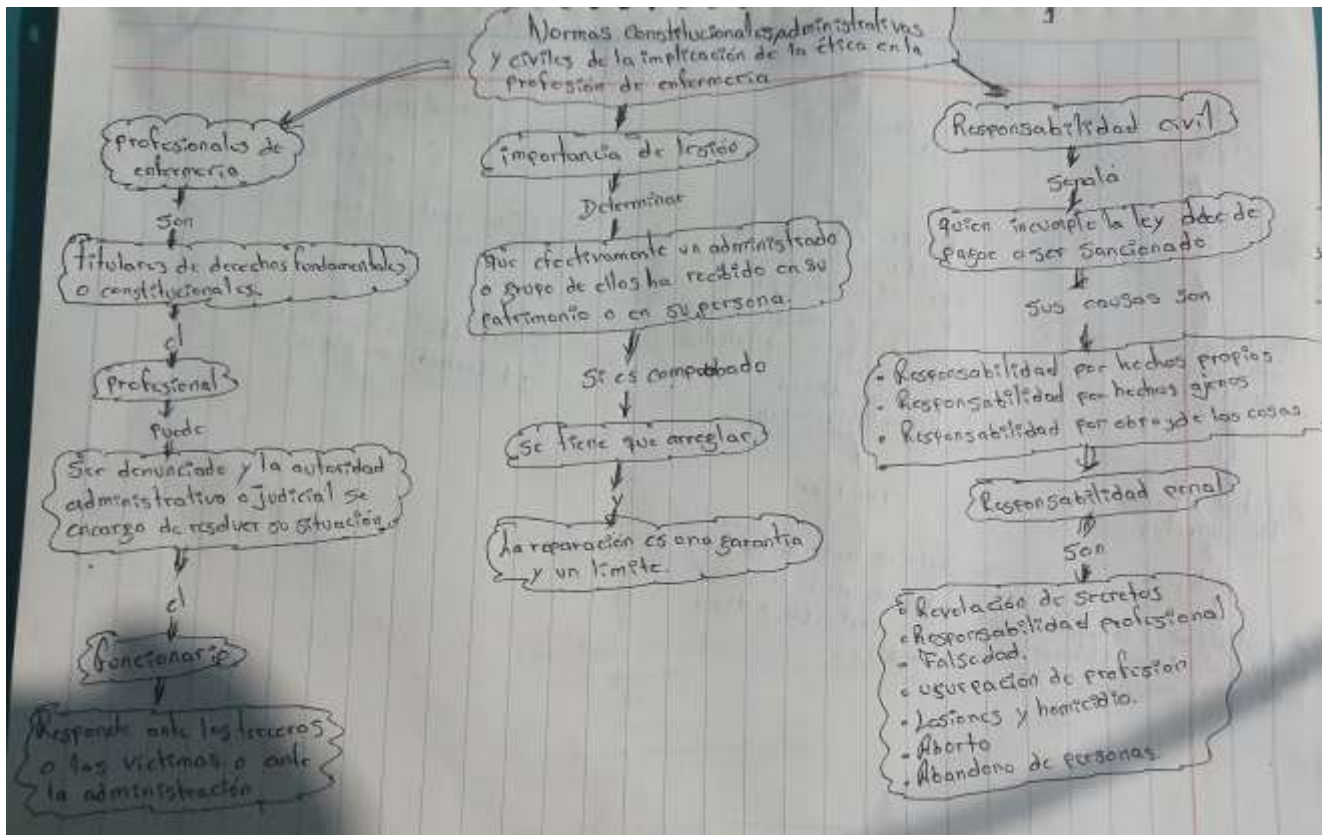 1
Normas Constitucionales, administrativas
y civiles de la implicación de la ética en la
profesión de enfermería
profesionales de
enfermería
son
titulares de derechos fundamentales
o constitucionales.
el
Profesional
puede
Ser denunciado y la autoridad
administrativa o judicial se
encarga de resolver su situación.
el
funcionario
Responde ante los terceros
o las víctimas o ante
la administración
importancia de lesión
Determinar
que efectivamente un administrado
o grupo de ellos ha recibido en su
patrimonio o en su persona.
Si es comprobado
Se tiene que arreglar
y
La reparación es una garantía
y un límite.
Responsabilidad civil
Señala
quien incumple la ley debe de
pagar o ser sancionado
sus causas son
- Responsabilidad por hechos propios
- Responsabilidad por hechos ajenos
- Responsabilidad por obra de las cosas.
Responsabilidad penal
Son
• Revelación de secretos
• Responsabilidad profesional
- Falsedad.
• usurpación de profesión
- Lesiones y homicidio.
- Aborto
- Abandono de personas.